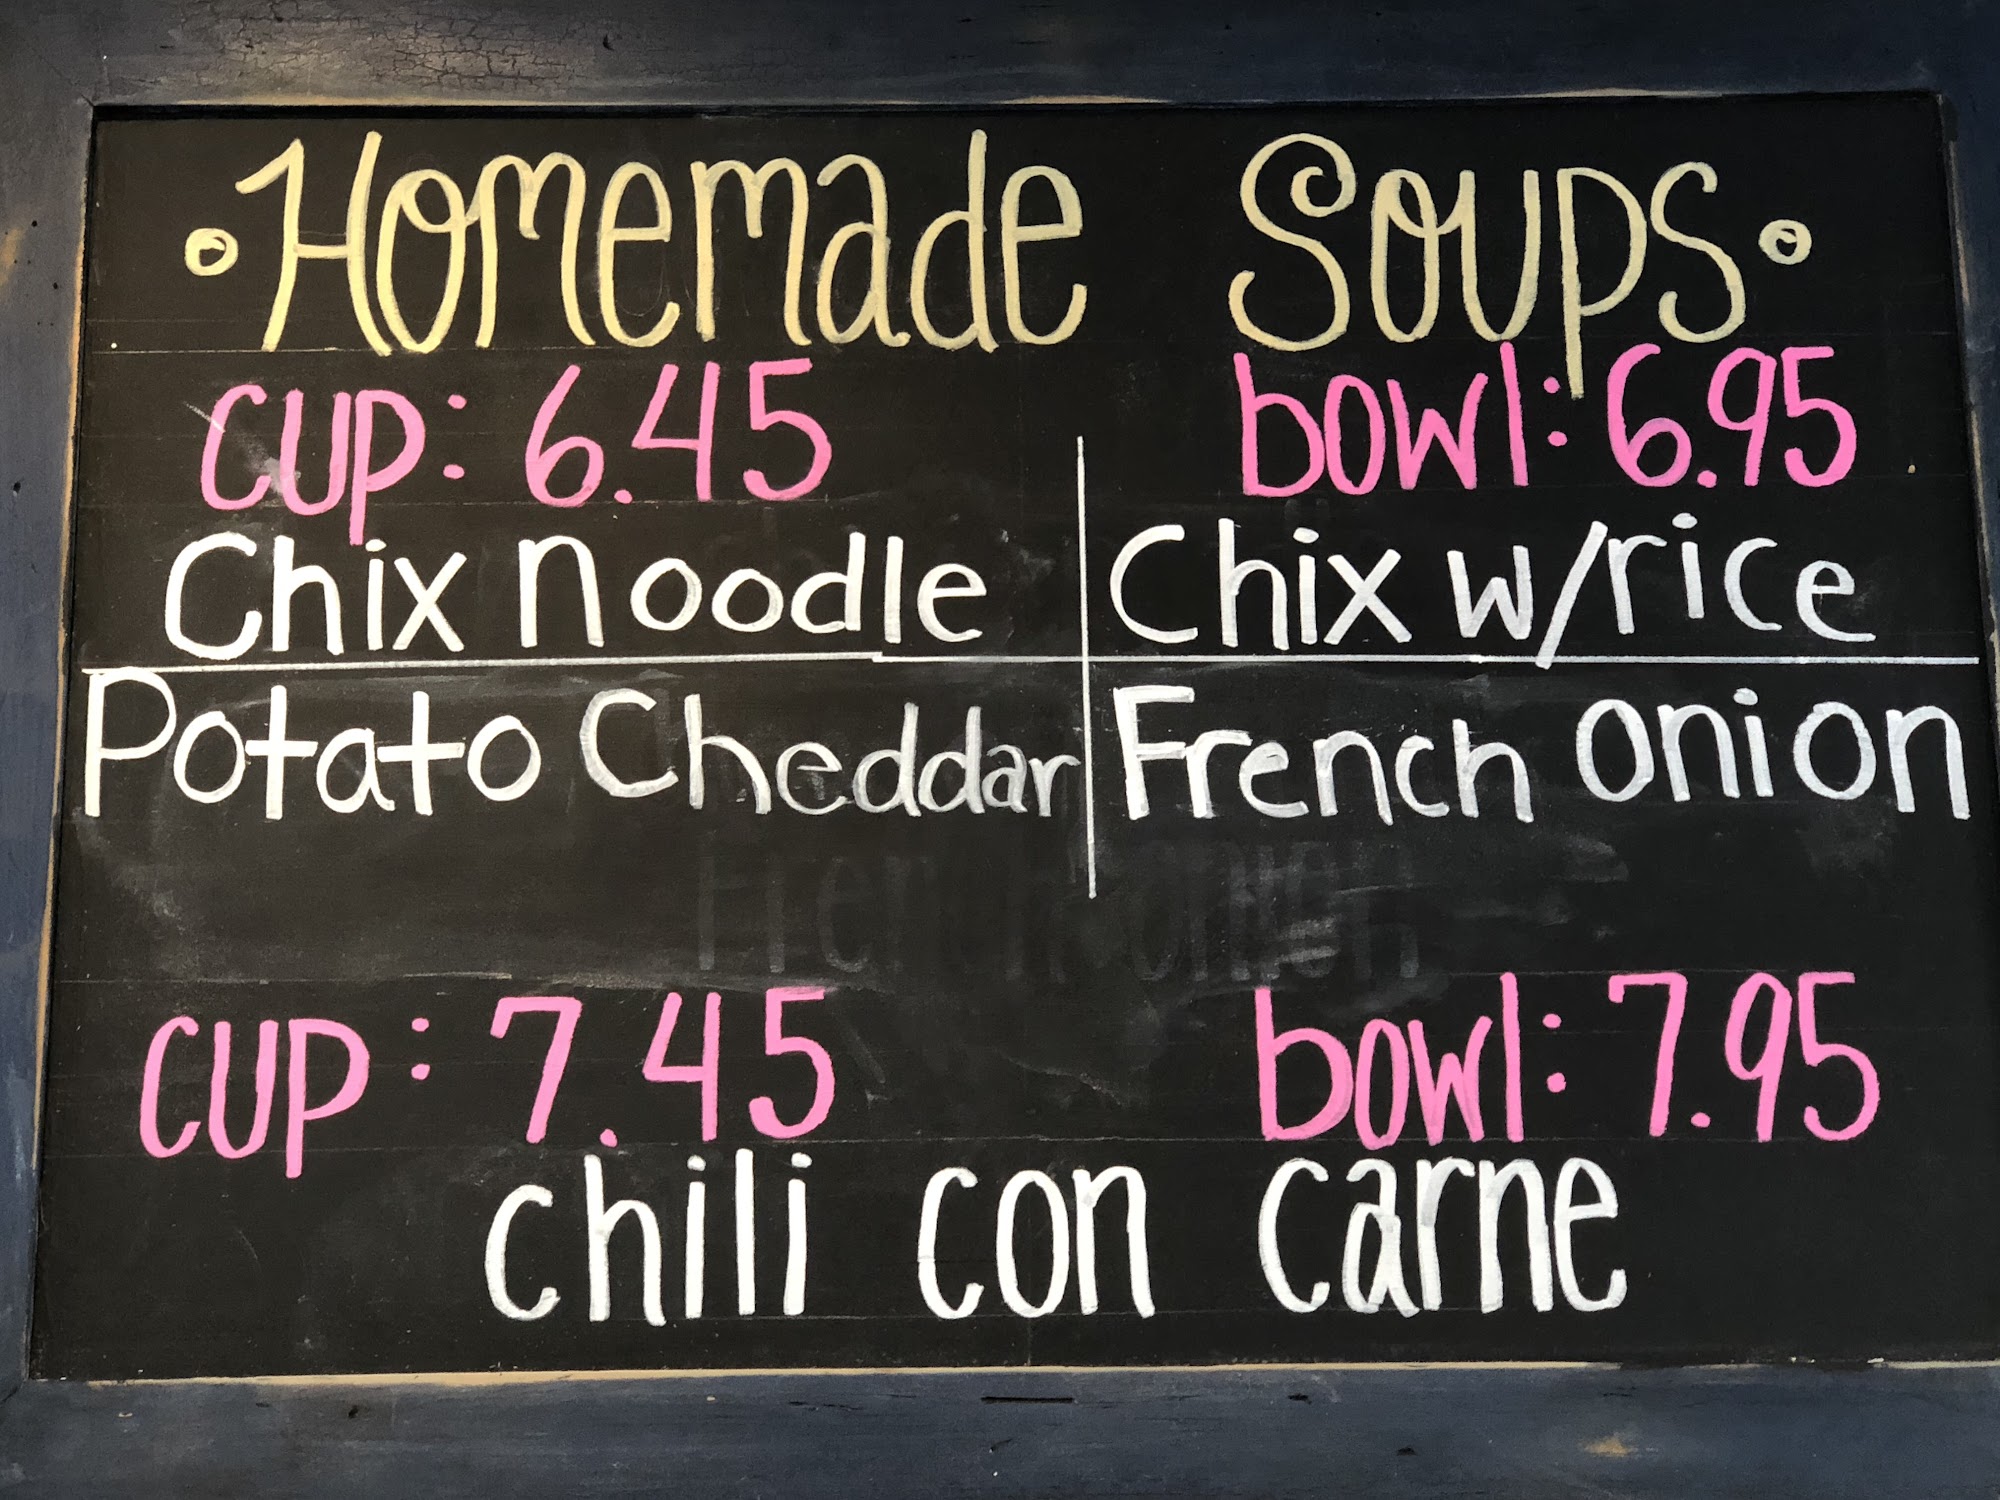 Homemade Soups
cup: 6.45 bowl: 6.95
Chix noodle Chix w/rice
Potato Cheddar French onion
cup: 7.45 bowl: 7.95
chili con carne